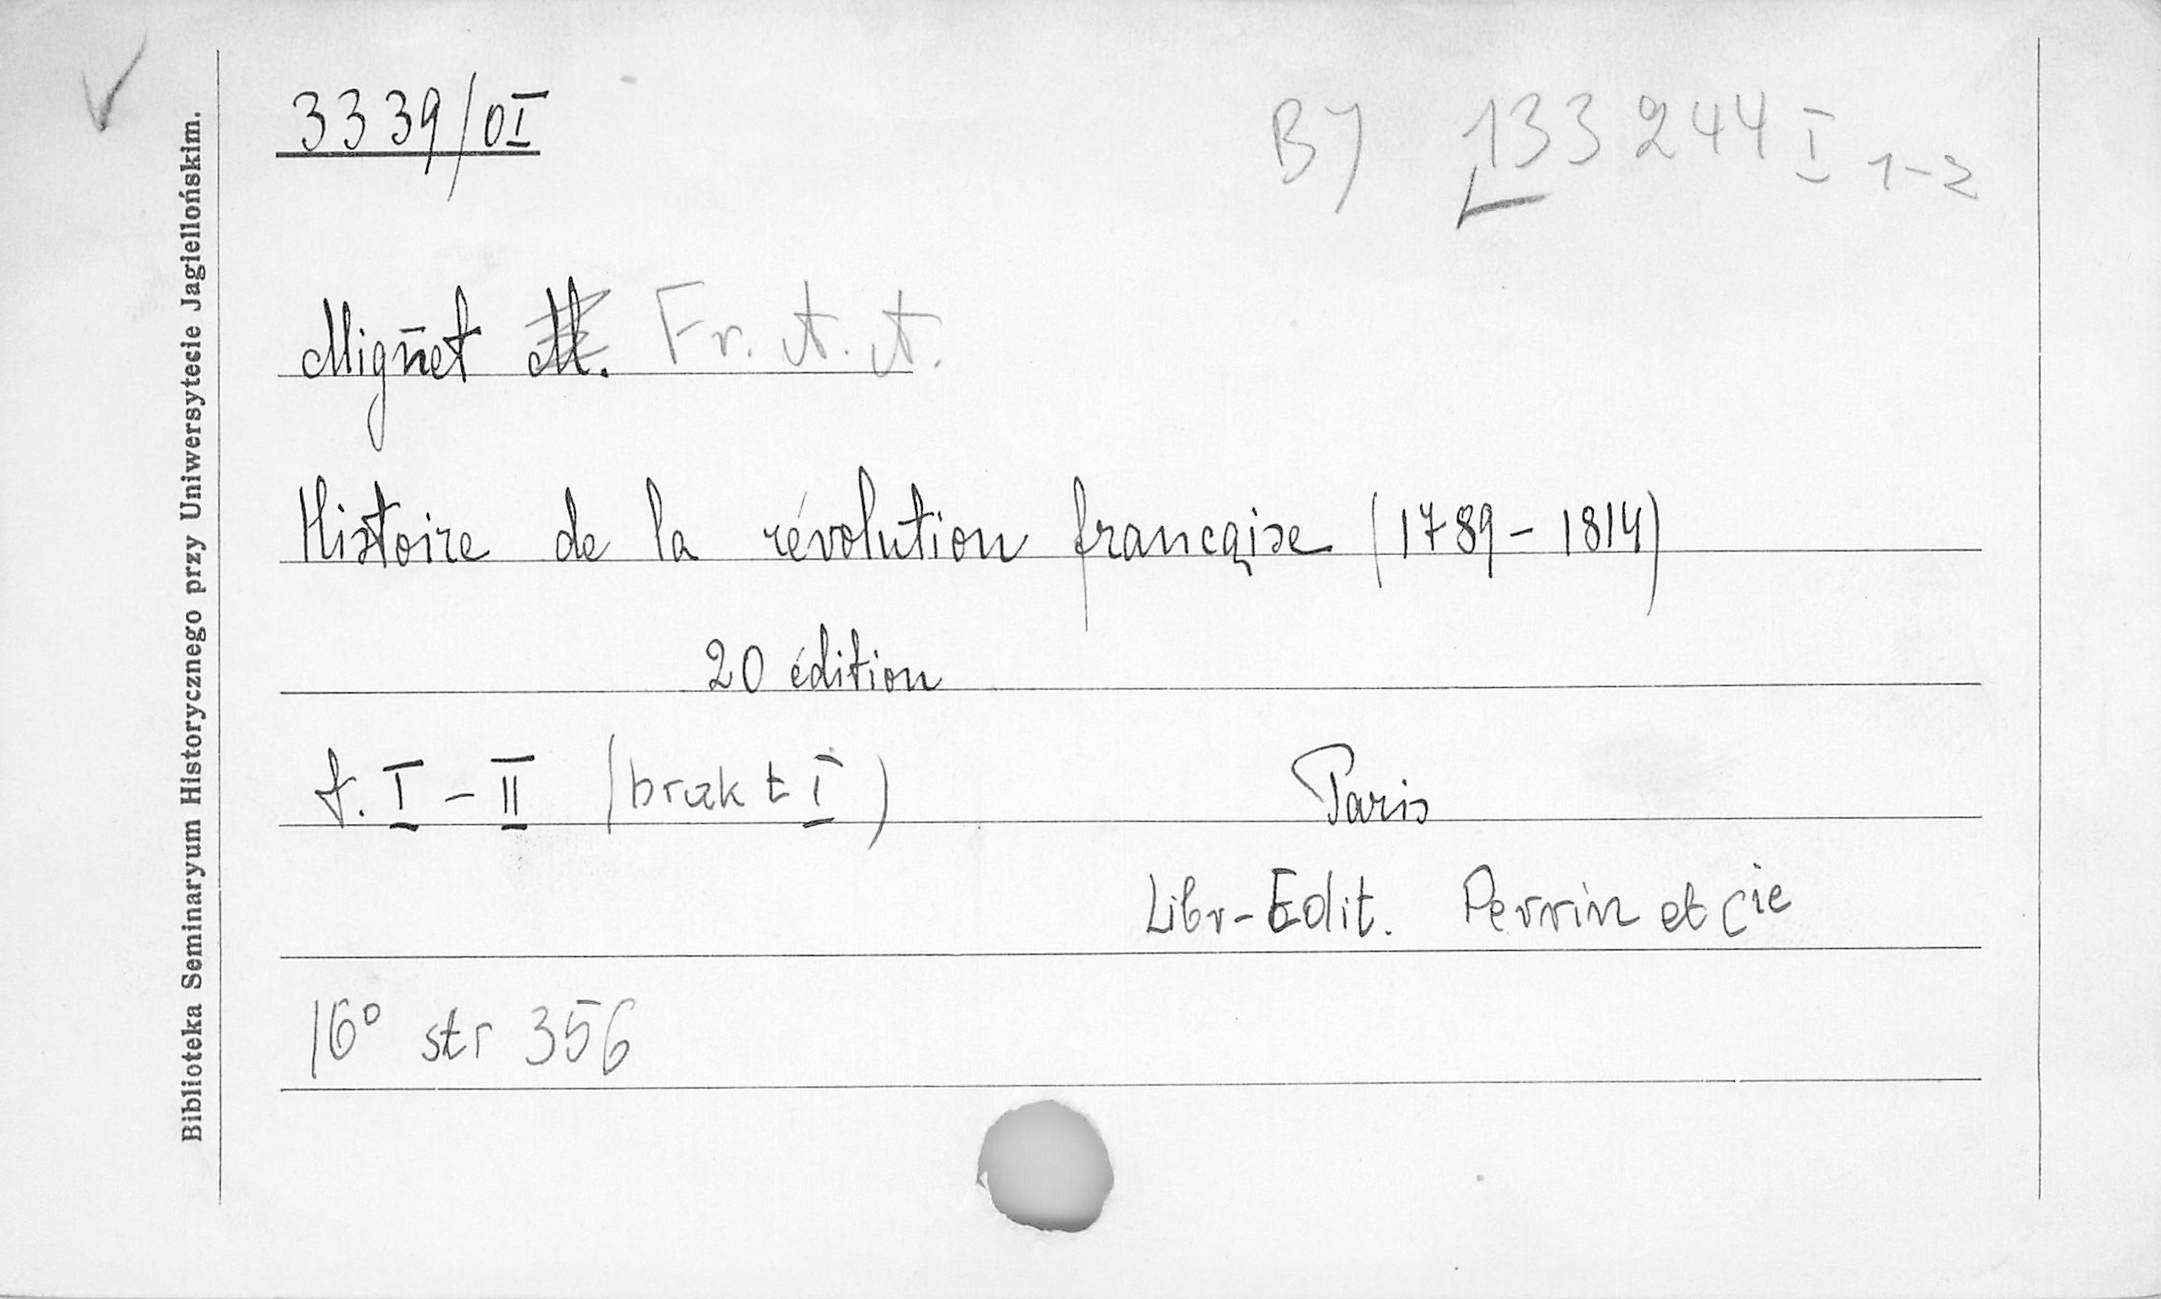 3339/0I
BJ 133244 I 1-2
Mignet M. Fr. A. A.
Histoire de la révolution francaise (1789-1814)
20 édition
t. I - II (brak t I) Paris
Libr-Edit. Perrin et Cie
16° str 356
Biblioteka Seminaryum Historycznego przy Uniwersytecie Jagiellońskim.